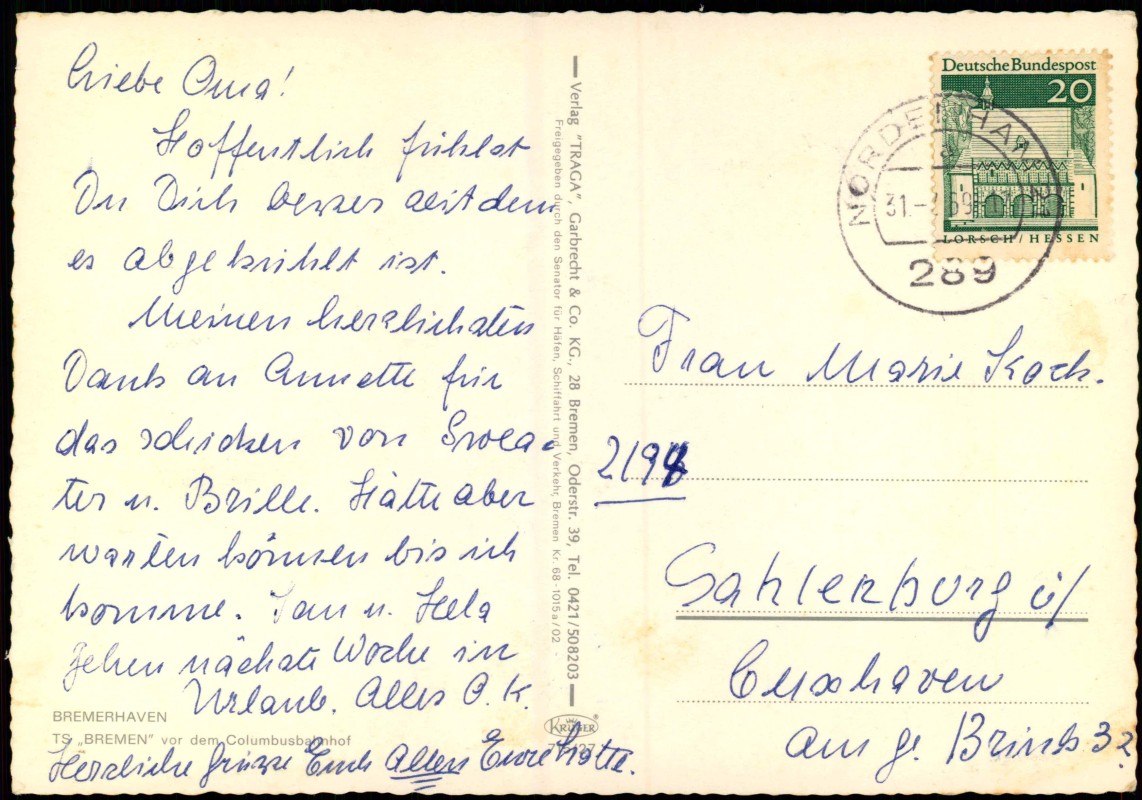 Liebe Oma!
Hoffentlich fühlst
Du Dich besser seitdem
es abgekühlt ist.
Meinen herzlichsten
Dank an Annette für
das schicken von Swea-
ter u. Brille. Hätte aber
warten können bis ich
komme. Jan u. Hela
gehen nächste Woche in
Urlaub. Alles O.K.
Herzliche Grüsse Euch Allen Eure Lotte.
BREMERHAVEN
TS „BREMEN" vor dem Columbusbahnhof
Verlag "TRAGA", Garbrecht & Co. KG., 28 Bremen, Oderstr. 39, Tel. 0421/508203
Freigegeben durch den Senator für Häfen, Schiffahrt und Verkehr, Bremen Kr. 68-1015a/02
KRÜGER
Deutsche Bundespost
20
LORSCH/HESSEN
NORDENHAM
31.- 69
289
Frau Marie Koch.
2194
Sahlenburg ü/
Cuxhaven
am g. Brink 32